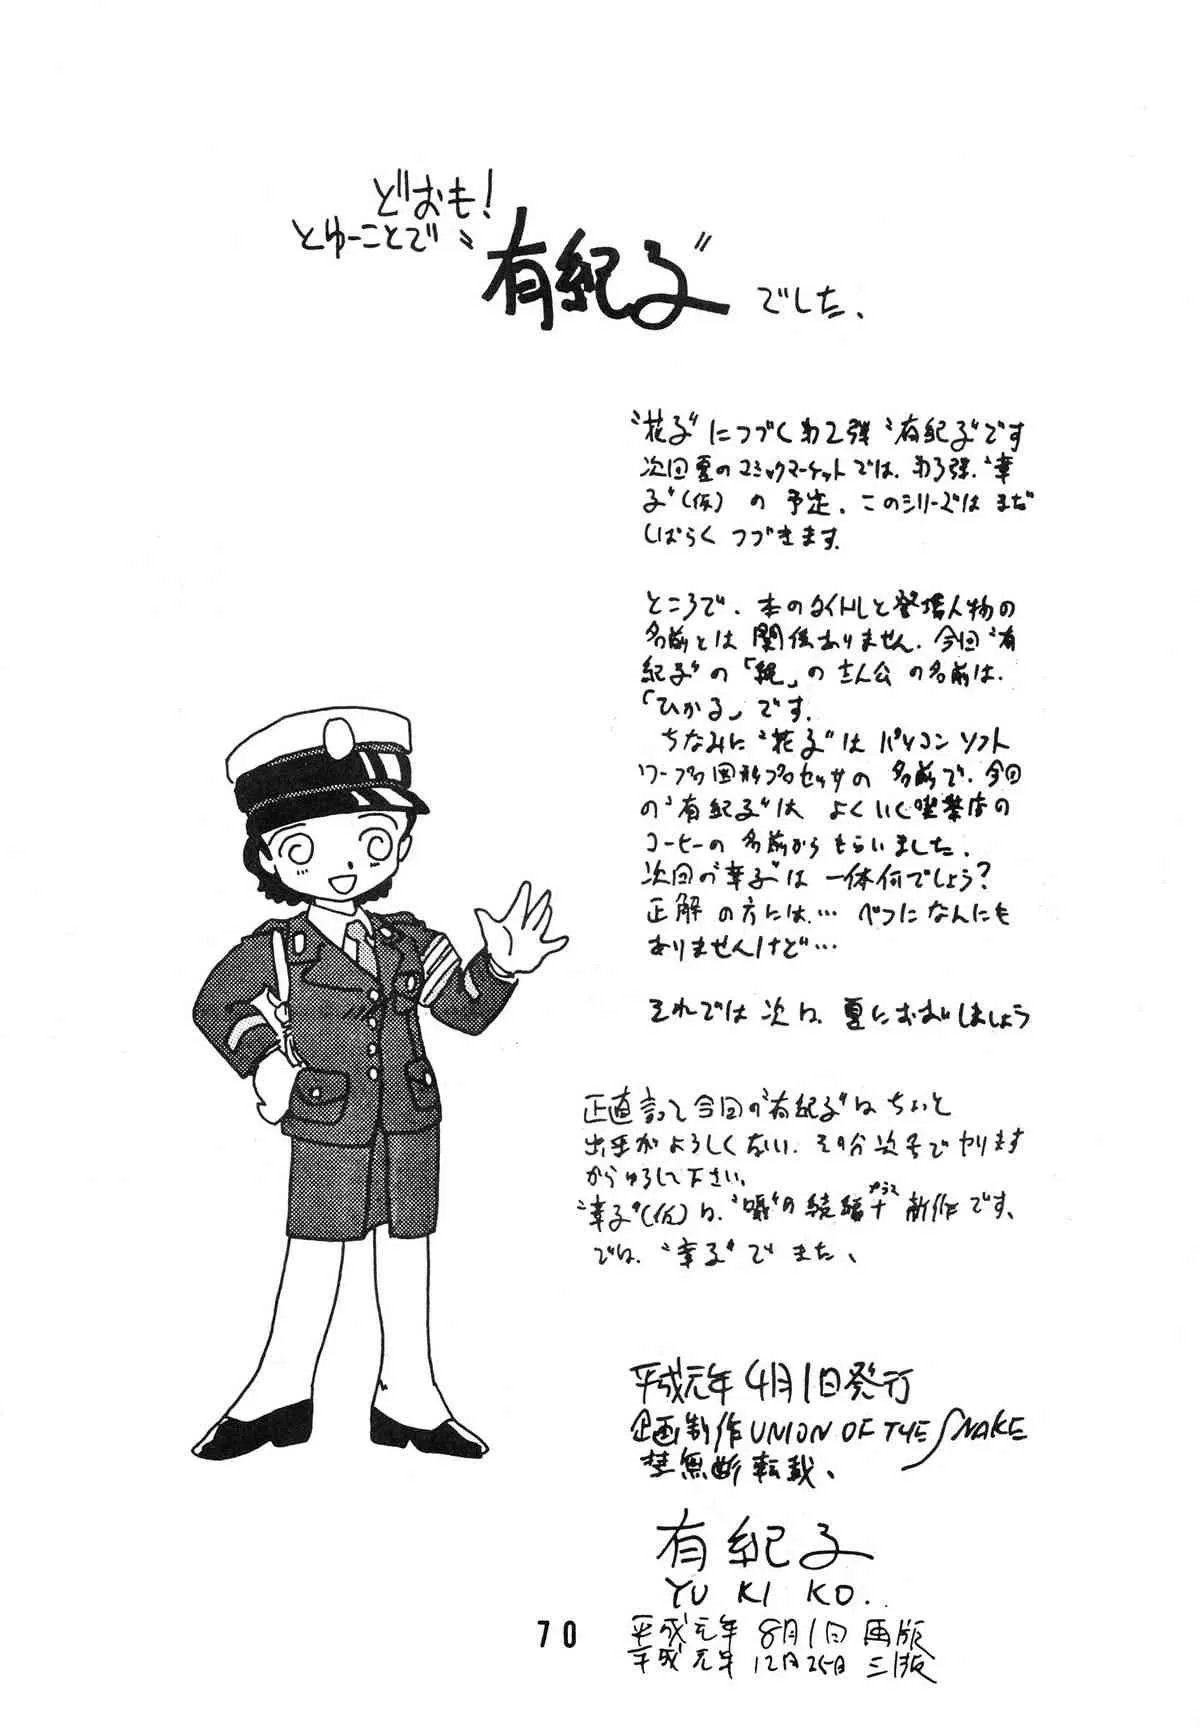 どおも!
とゆーことで〝有紀子〟でした、
〝花子〟につづく第2弾〝有紀子〟です
次回夏のコミックマーケットでは、第3弾、〝幸
子〟(仮) の 予定、このシリーズは まだ
しばらく つづきます.
ところで、本のタイトルと登場人物の
名前とは 関係ありません. 今回〝有
紀子〟の「 」の主人公 の名前は、
「ひかる」です.
ちなみに〝花子〟は パソコン ソフト
ワープロ図形プロセッサの 名前で、今回
の〝有紀子〟は よくいく喫茶店の
コーヒーの 名前から もらいました.
次回の〝幸子〟は 一体何でしょう?
正解 の方には… べつに なんにも
ありませんけど…
それでは 次は、夏におあいしましょう
正直言って今回の〝有紀子〟は ちょいと
出来が よろしくない、その分 次号で やります
からゆるして下さい。
〝幸子〟(仮)は、 の続編+プラス 新作です、
では、〝幸子〟で また、
平成元年4月1日発行
企画制作UNION OF THE SNAKE
禁無断転載、
有紀子
YU KI KO.
平成元年 8月1日 再版
平成元年 12月25日 三版
70